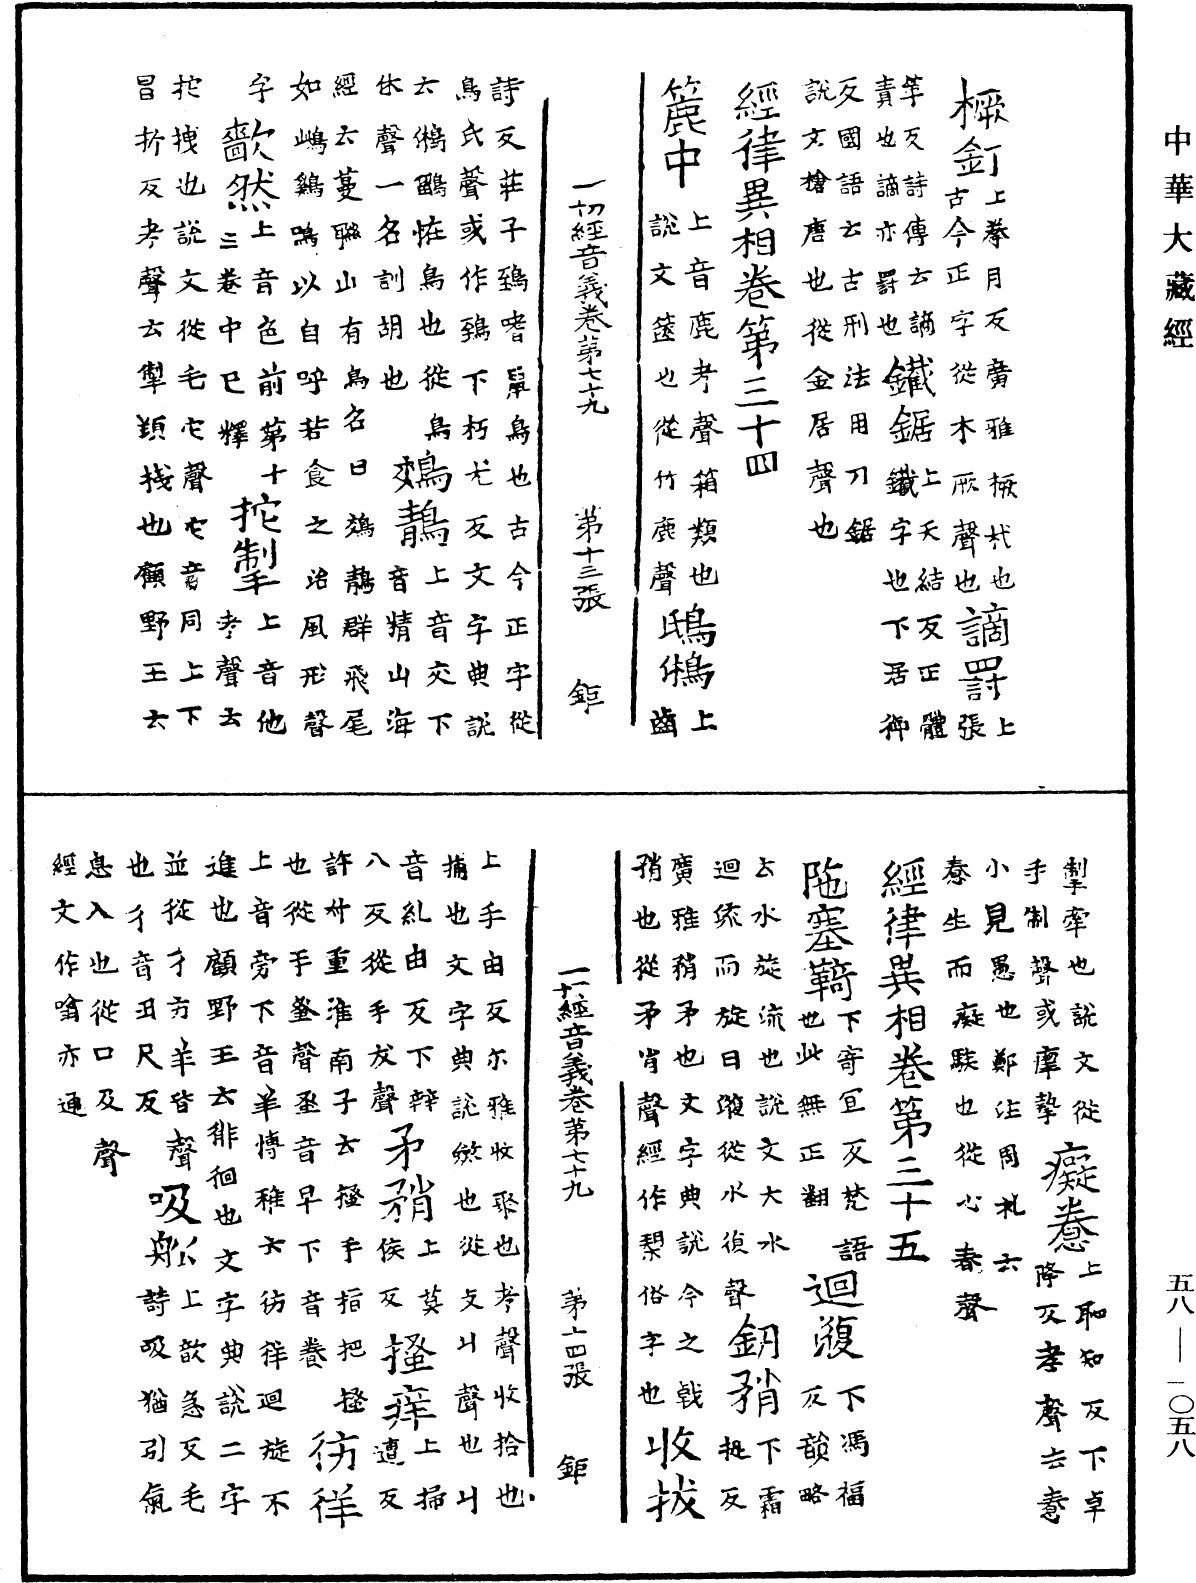 中華大藏經
橛釘上拳月反廣雅橛杙也古今正字從木厥聲也謫罰上張
革反詩傳云謫責也謫亦罰也鐵鋸上天結反正體鐵字也下居御
反國語云古刑法用刀鋸說文槍唐也從金居聲也
經律異相卷第三十四
簏中上音鹿考聲箱類也說文簏也從竹鹿聲鴟鵂上齒
一切經音義卷第七十九 第十三張 鉅
詩反莊子鵄嗜鼠鳥也古今正字從
鳥氏聲或作鵄下朽尤反文字典說
云鵂鶹恠鳥也從鳥休聲一名訓胡也鵁鶄上音交下音精山海
經云蔓聯山有鳥名曰鵁鶄群飛尾
如鷄鳴以自呼若食之治風形聲
字歡然上音色前第十三卷中已釋拕掣上音他考聲云
拕拽也說文從毛它聲它音同上下
昌折反考聲云掣頓拽也顧野王云
掣牽也說文從手制聲或㾂摯癡憃上恥知反下卓降反考聲云憃
小見愚也鄭注周禮云憃生而癡騃也從心舂聲
經律異相卷第三十五
阤塞鞫下寄宜反梵語也此無正翻迴澓下馮福反韻略
云水旋流也說文大水迴流而旋曰澓從水復聲釰矟下霜捉反
廣雅矟矛也文字典說今之戟矟也從矛肖聲經作槊俗字也收拔
一切經音義卷第七十九 第十四張 鉅
上手由反尒雅收聚也考聲收拾也
捕也文字典說斂也從攴丩聲也丩
音糺由反下辨八反從手犮聲矛矟上莫侯反搔痒上掃遭反
許叔重淮南子云搔手指把搔
也從手蚤聲蚤音早下音養彷徉
上音旁下音羊博雅云彷徉迴旋不
進也顧野王云徘徊也文字典說二字
並從彳方羊皆聲也彳音丑尺反吸㕮上歆急反毛詩吸猶引氣
息入也從口及聲經文作噏亦通
五八—一〇五八